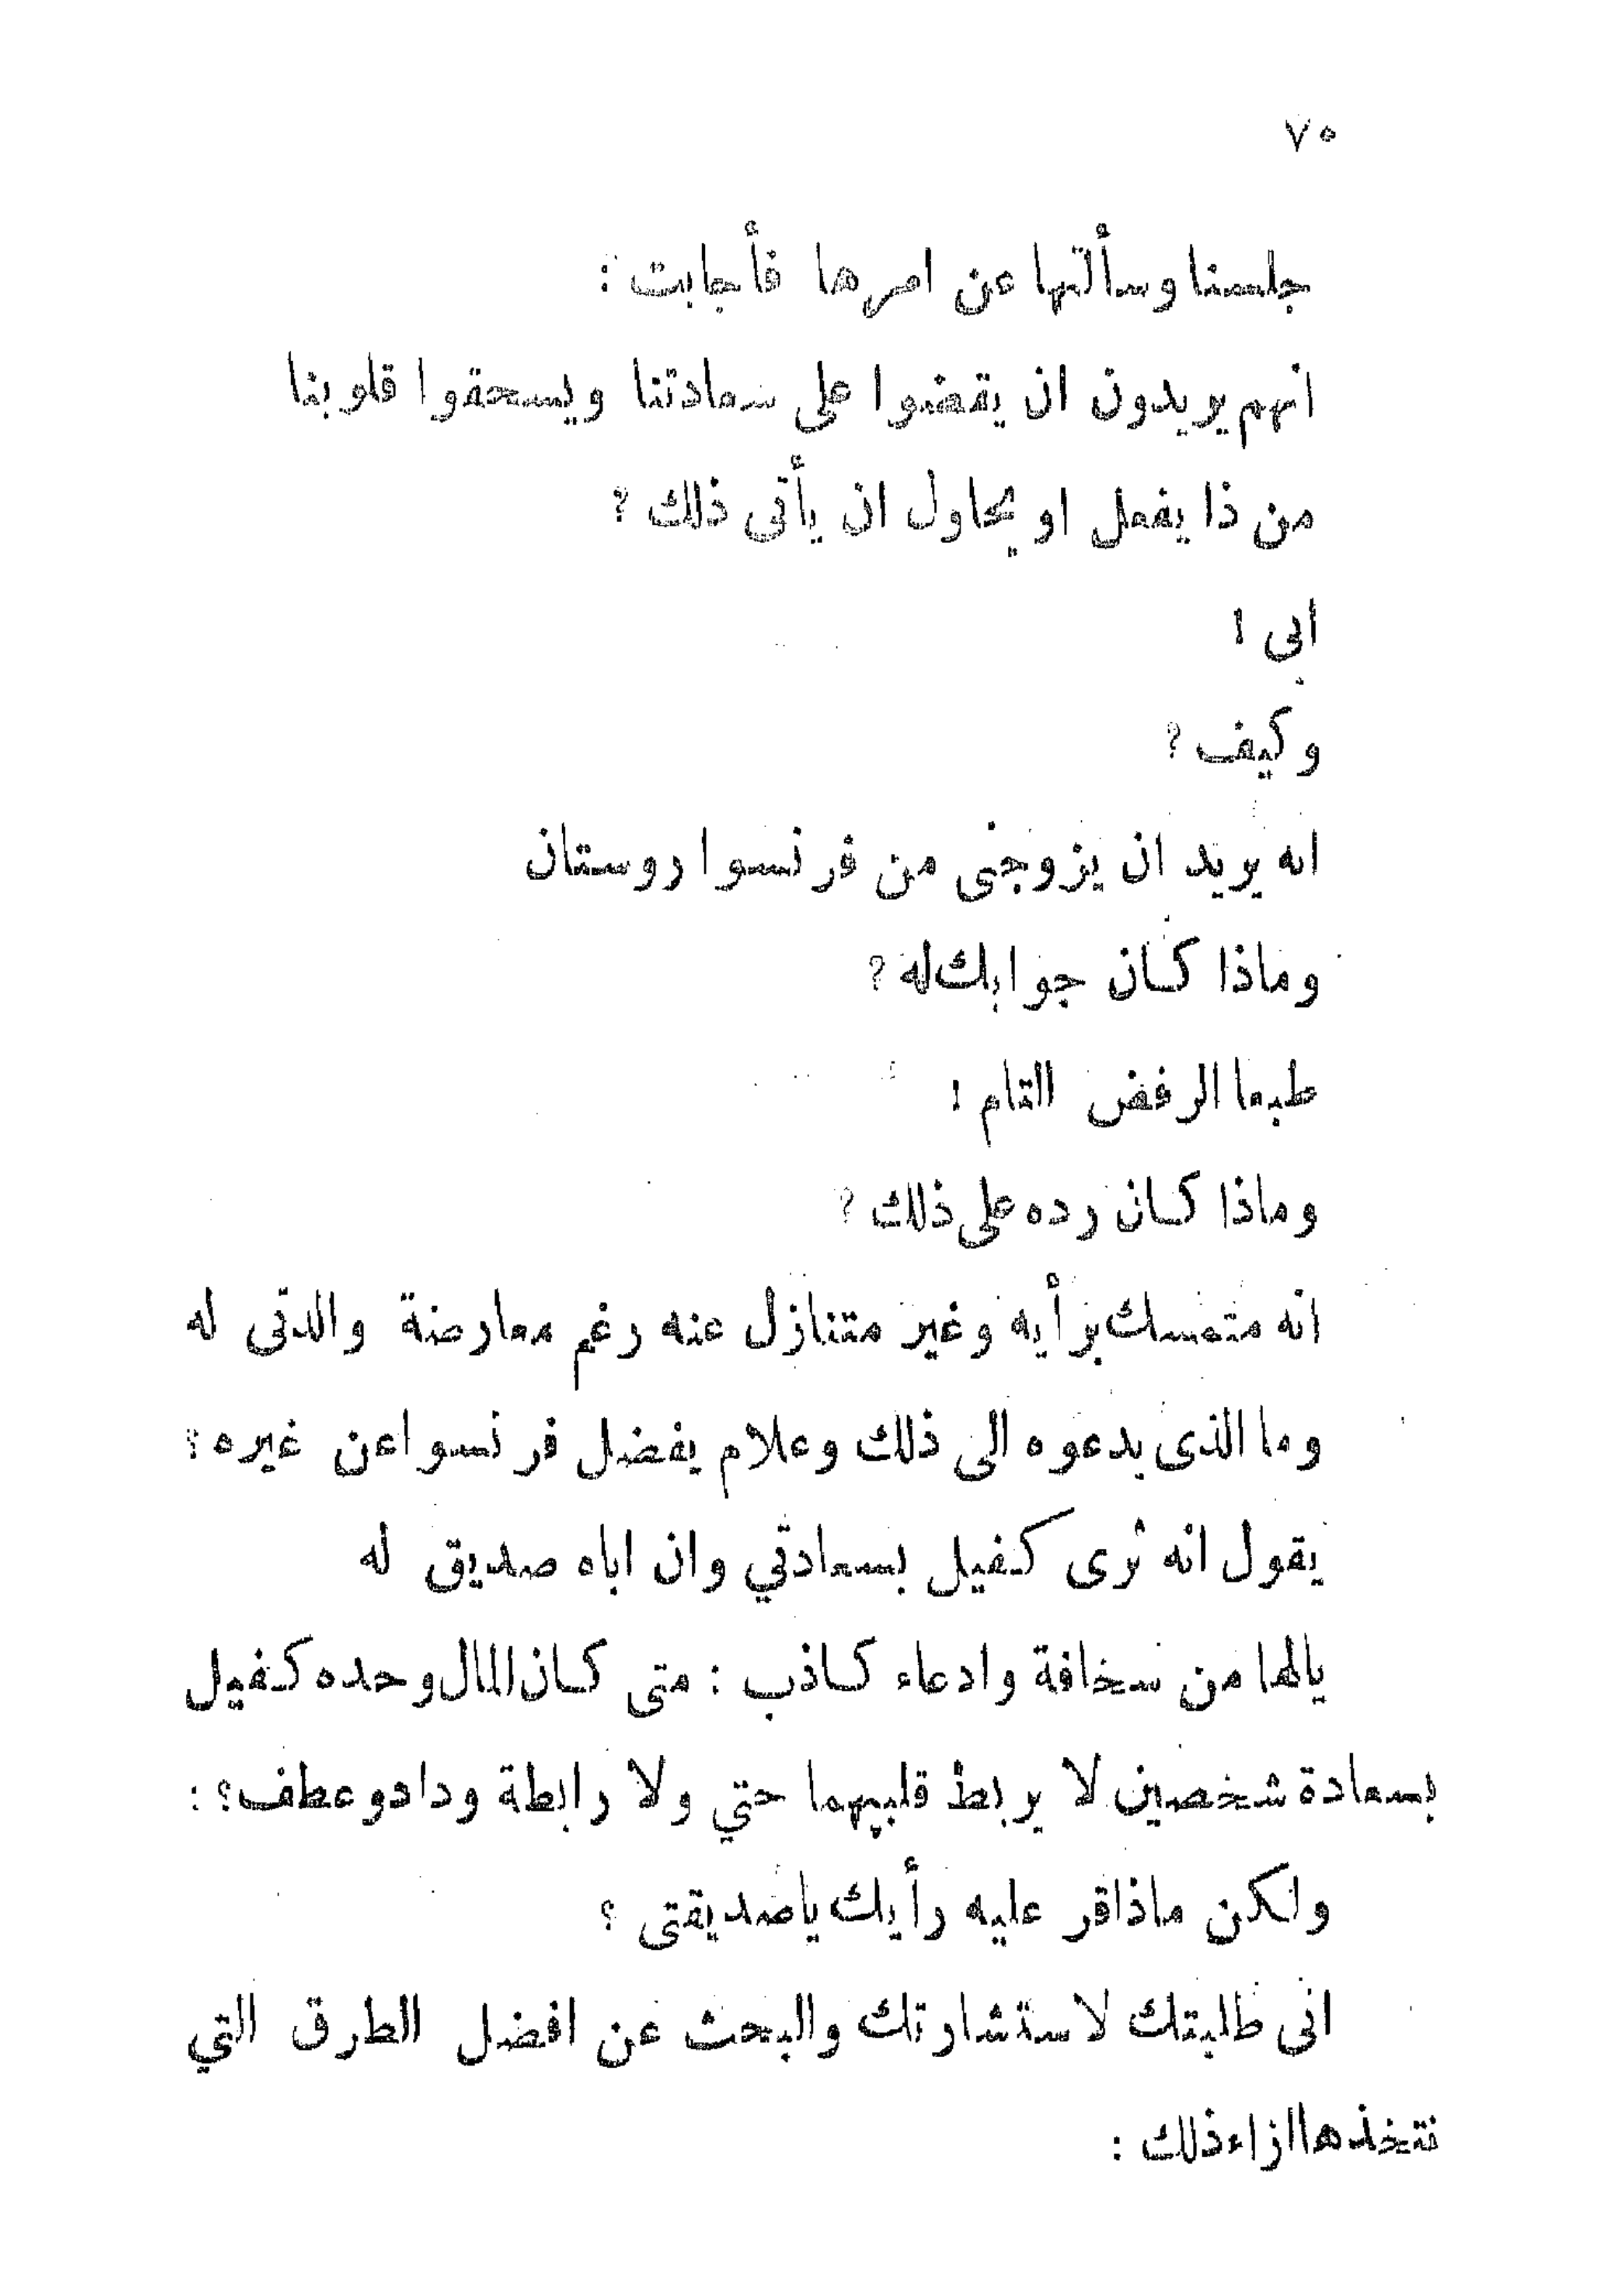 ٧٥
جلسنا وسألتها عن امرها فأجابت :
انهم يريدون ان يقضوا على سعادتنا ويسحقوا قلوبنا
من ذا يفعل او يحاول ان يأتى ذلك ؟
ابى !
وكيف ؟
انه يريد ان يزوجنى من فرنسوا روستان
وماذا كان جوابك له ؟
طبعا الرفض التام !
وماذا كان رده على ذلك ؟
انه متمسك برأيه وغير متنازل عنه رغم معارضة والدتى له
وما الذى يدعوه الى ذلك وعلام يفضل فرنسوا عن غيره ؟
يقول انه ثرى كفيل بسعادتي وان اباه صديق له
يالها من سخافة وادعاء كاذب : متى كان المال وحده كفيل
بسعادة شخصين لا يربط قلبيهما حتي ولا رابطة وداد وعطف ؟ :
ولكن ماذا قر عليه رأيك يا صديقتى ؟
انى طلبتك لاستشارتك والبحث عن افضل الطرق التي
نتخذها ازاء ذلك :